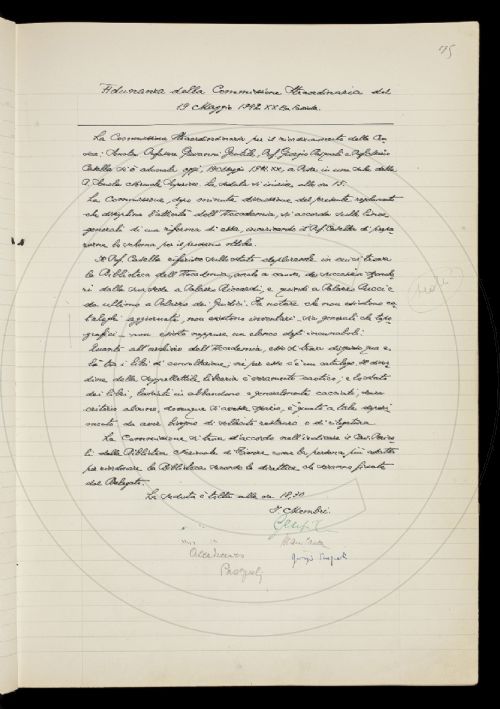 75
Adunanza della Commissione Straordinaria del
19 Maggio 1942 XX
La Commissione Straordinaria per il riordinamento della Cru-
sca: Senatore Professore Giovanni Gentile, Prof. Giorgio Pasquali e Prof.
Casella si è adunata oggi, 19 Maggio 1942. XX, a Pisa, in una sala della
R. Scuola Normale Superiore. La seduta si inizia alle ore 15.
La Commissione, dopo minuta discussione del presente regolamento
che disciplina l'attività dell'Accademia, si accorda sulle linee
generali di una riforma di essa, incaricando il Prof. Casella di prepa-
rarne lo schema per il prossimo ottobre.
Il Prof. Casella riferisce sullo stato deplorevole in cui si trova
la Biblioteca dell'Accademia, anche a causa dei successivi
dalla sua sede a Palazzo Riccardi, e quindi a Palazzo Pucci e
da ultimo a Palazzo dei Giudici. Fa notare che non esistono ca-
taloghi aggiornati, non esistono inventari, sia generali che topo-
grafici - non esiste neppure un elenco degli incunaboli:
Quanto all'archivio dell'Accademia, esso si trova disperso qua e
là tra i libri di consultazione, né per esso c'è un catalogo. Il
della suppellettile libraria è veramente caotico, e lo stato
dei libri, lasciati in abbandono e generalmente cacciati, senza
criterio alcuno, dovunque vi avesse spazio, è giunto a tale
da aver bisogno di restauro o di rilegatura.
La Commissione si trova d'accordo nell'indicare il
della Biblioteca Nazionale di Firenze come la persona più adatta
per riordinare la Biblioteca secondo le direttive che saranno fissate
dal Delegato.
La seduta è tolta alle ore 18,30
I Membri:
Giorgio Pasquali
Pasquali